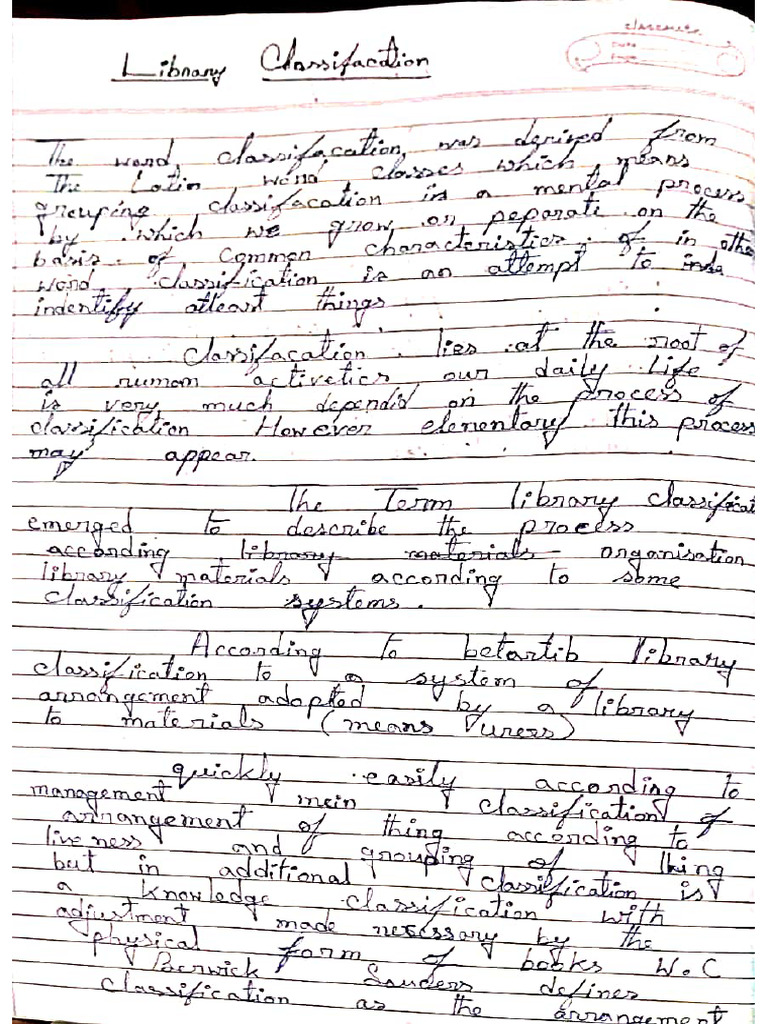 classmate
Date
Page
Library Classifacation
The word classifacation was derived from
The Latin word classes which means
grouping classifacation is a mental process
by which we grow or peparati on the
basis of common characteristics. of in othe
word, classification is an attempt to
indentify atleast things
Classifacation lies at the root of
all human activetics our daily Life
is very much dependid on the process of
classification However elementary this process
may appear.
The Term library classificat
emerged to describe the process
according library materials organisation
library materials according to some
classification systems.
According to betartib library
classification to a system of
arrangement adopted by a library
to materials (means users)
quickly easily according to
management mein classification of
arrangement of thing according to
liveness and grouping of thing
but in additional classification is
a knowledge classification with
adjustment made necessary by the
physical form of books W.C
Berwick Sauders defines
classification as the arrangement